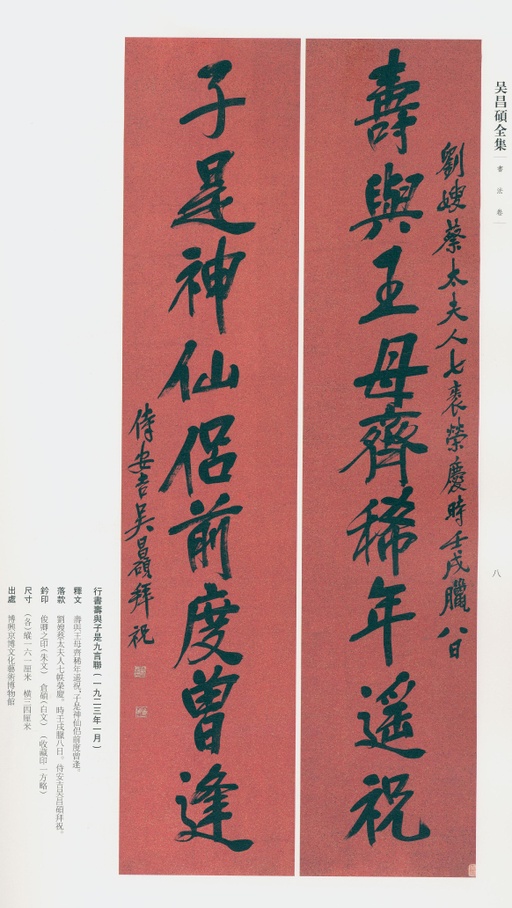 吴昌碩全集 書法卷
八
劉嫂蔡太夫人七袠榮慶時壬戌臘八日
壽與王母齊稀年遥祝
子是神仙侣前度曾逢
侍安吉吴昌碩拜祝
行書壽與子是九言聯(一九二三年一月)
釋文 壽與王母齊稀年遥祝,子是神仙侣前度曾逢。
落款 劉嫂蔡太夫人七帙榮慶。時壬戌臘八日。侍安吉吴昌碩拜祝。
鈐印 俊卿之印(朱文) 倉碩(白文) (收藏印一方略)
尺寸 (各)縱一六一厘米 横三四厘米
出處 博興京博文化藝術博物館